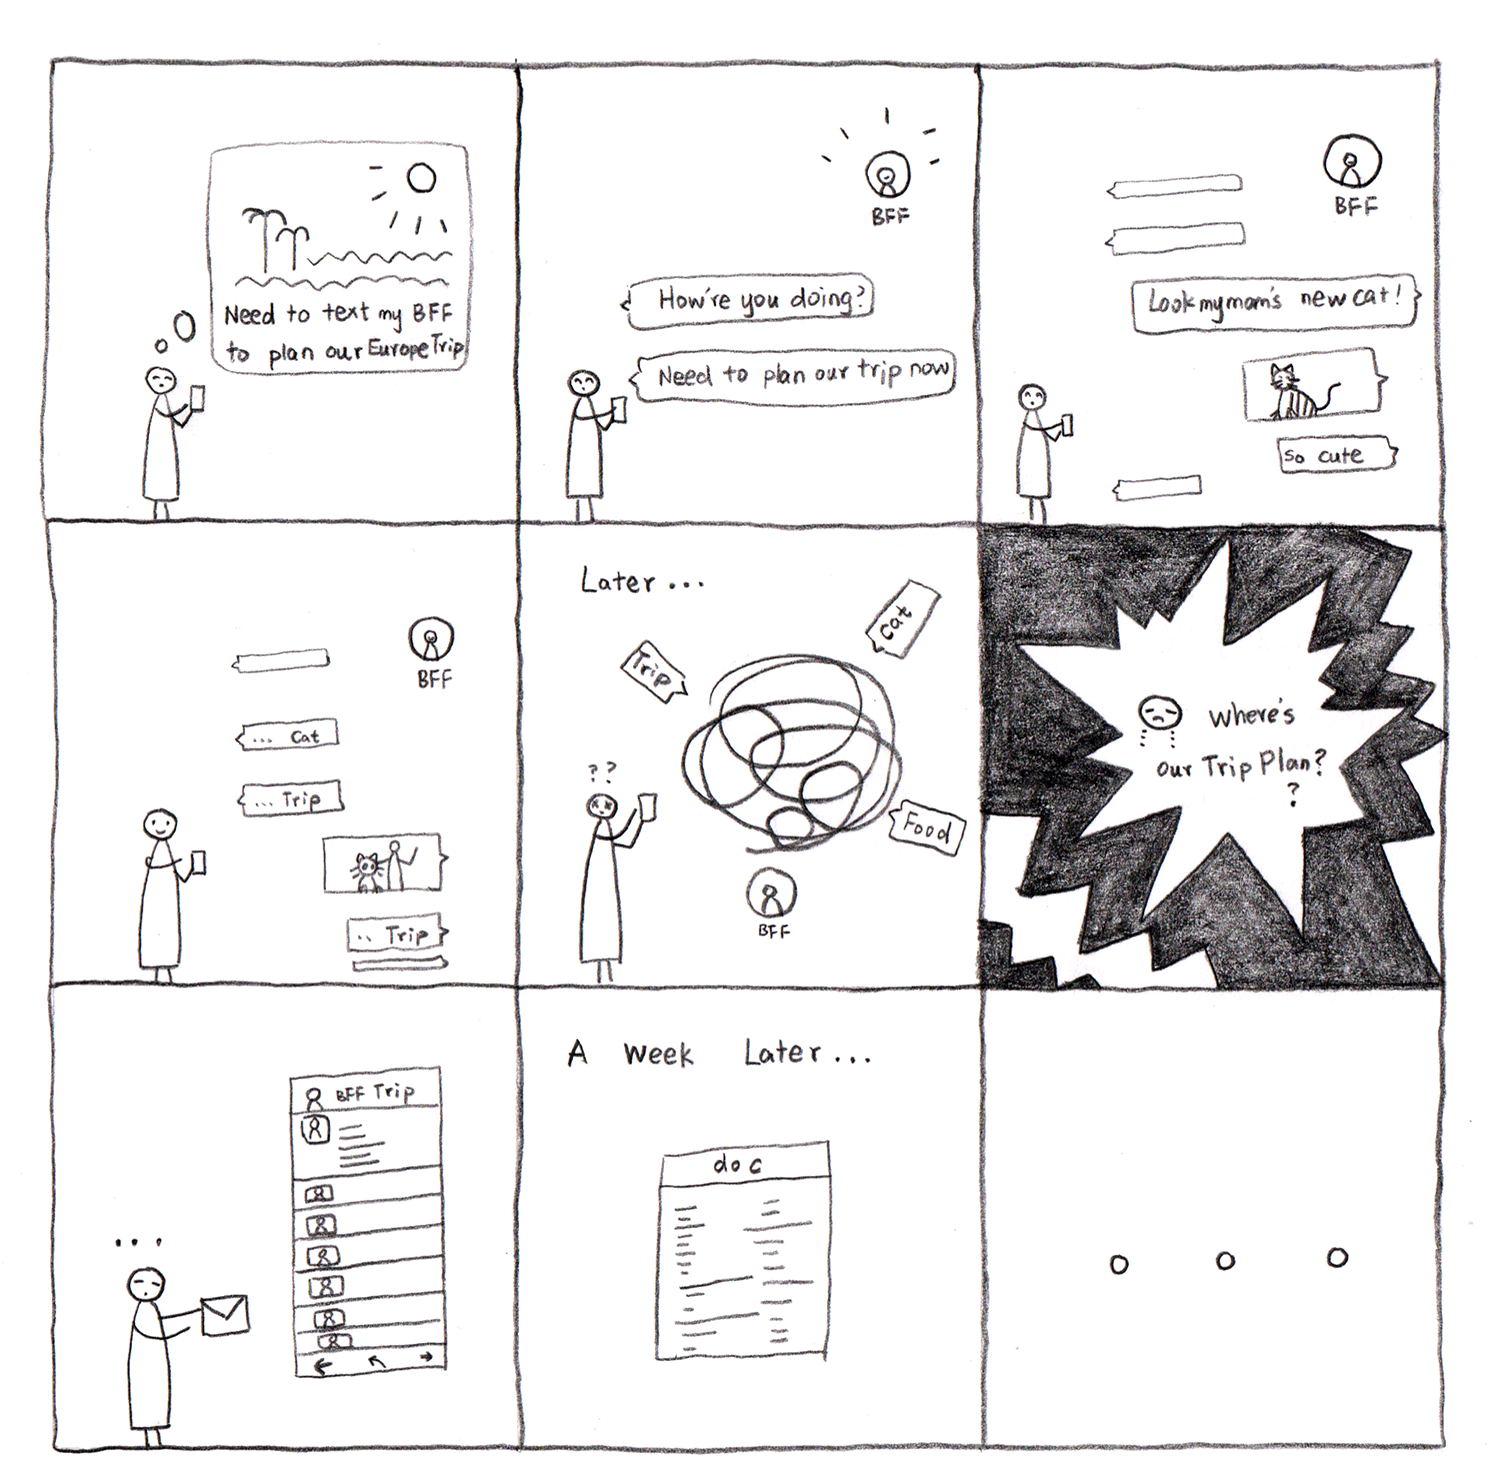 Need to text my BFF
to plan our Europe Trip
BFF
How're you doing?
Need to plan our trip now
BFF
Look my mom's new cat!
so cute
BFF
... Cat
... Trip
.. Trip
Later ...
Cat
Trip
??
Food
BFF
Where's
our Trip Plan?
?
...
BFF Trip
A Week Later...
doc